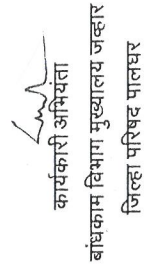 कार्यकारी अभियंता
बांधकाम विभाग मुख्यालय जव्हार
जिल्हा परिषद पालघर